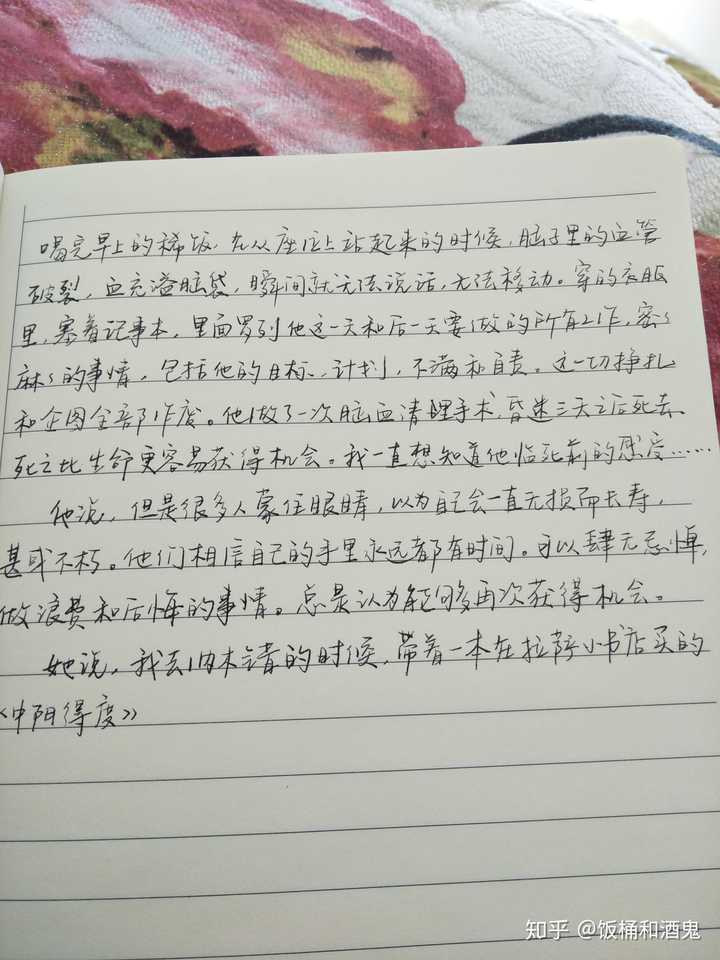 喝完早上的稀饭，在从座位上站起来的时候，脑子里的血管
破裂，血充溢脑袋，瞬间就无法说话，无法移动。穿的衣服
里，塞着记事本，里面罗列他这一天和后一天要做的所有工作，密密
麻麻的事情，包括他的目标、计划，不满和自责。这一切挣扎
和企图全部作废。他做了一次脑血清理手术，昏迷三天之后死去。
死亡比生命更容易获得机会。我一直想知道他临死前的感受……
他说，但是很多人蒙住眼睛，以为自己会一直无损而长寿，
甚或不朽。他们相信自己的手里永远都有时间。可以肆无忌惮，
做浪费和后悔的事情。总是认为能够再次获得机会。
她说，我去墨脱的时候，带着一本在拉萨小书店买的
《中阴得度》
知乎 @饭桶和酒鬼